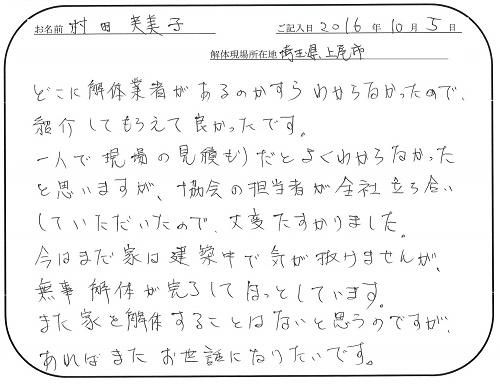 お名前 村田 芙美子 ご記入日 2016 年 10 月 5 日
解体現場所在地 埼玉県上尾市
どこに解体業者があるのかすらわからなかったので、
紹介してもらえて良かったです。
一人で現場の見積もりだとよくわからなかった
と思いますが、協会の担当者が全社立ち合い
していただいたので、大変たすかりました。
今はまだ家は建築中で気が抜けませんが、
無事解体が完了してほっとしています。
また家を解体することはないと思うのですが、
あればまたお世話になりたいです。